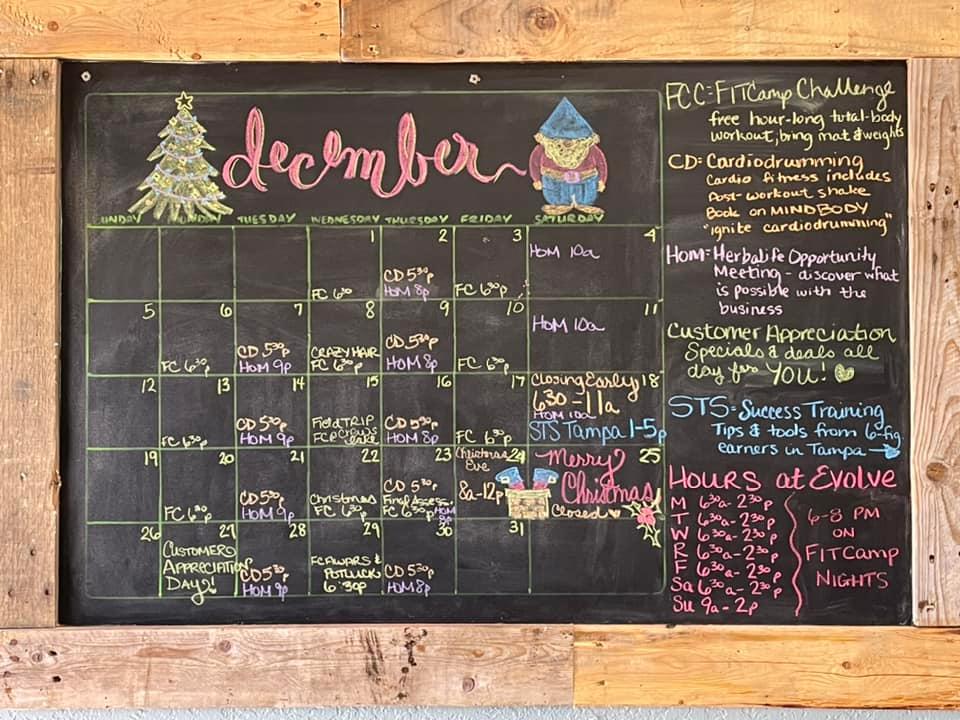 december
UNDAY
TUESDAY
WEDNESDAY
THURSDAY
FRIDAY
SATURDAY
1
FC 6³⁰
2
CD 5³⁰p
HOM 8p
3
FC 6³⁰p
4
HOM 10a
5
6
FC 6³⁰p
7
CD 5³⁰p
HOM 9p
8
CRAZY HAIR
FC 6³⁰p
9
CD 5³⁰p
HOM 8p
10
FC 6³⁰p
11
HOM 10a
12
13
FC 6³⁰p
14
CD 5³⁰p
HOM 9p
15
Field TRIP
16
CD 5³⁰p
HOM 8p
17
FC 6³⁰p
18
Closing Early
6³⁰-11a
HOM 10a
STS Tampa 1-5p
19
20
FC 6³⁰p
21
CD 5³⁰p
HOM 9p
22
Christmas
FC 6³⁰p
23
CD 5³⁰p
Final Assess.
FC 6³⁰p HOM
8p
24
Christmas
Eve
8a-12p
25
Merry
Christmas
Closed
26
27
CUSTOMER
APPRECIATION
DAY!
28
CD 5³⁰p
HOM 9p
29
FC AWARS &
POTLUCK
6³⁰p
30
CD 5³⁰p
HOM 8p
31
FCC=FITCamp Challenge
free hour-long total-body
workout, bring mat & weights
CD= Cardiodrumming
Cardio fitness includes
Post-workout shake
Book on MINDBODY
"ignite cardiodrumming"
HOM= Herbalife Opportunity
Meeting - discover what
is possible with the
business
Customer Appreciation
Specials & deals all
day for YOU!
STS=Success Training
Tips & tools from 6-fig
earners in Tampa
HOURS at EVOLVE
M 6³⁰a-2³⁰p
T 6³⁰a-2³⁰p
W 6³⁰a-2³⁰p
R 6³⁰a-2³⁰p
F 6³⁰a-2³⁰p
Sa 6³⁰a-2³⁰p
Su 9a-2p
6-8 PM
ON
FITCamp
NIGHTS